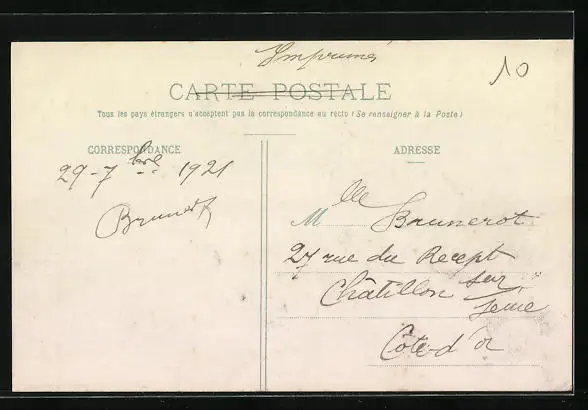 Imprimés
10
CARTE POSTALE
Tous les pays étrangers n'acceptent pas la correspondance au recto (Se renseigner à la Poste)
CORRESPONDANCE
ADRESSE
29-7bre 1921
Mlle Baunerot
27 rue du Recept
Châtillon sur
Seine
Côte-d'or